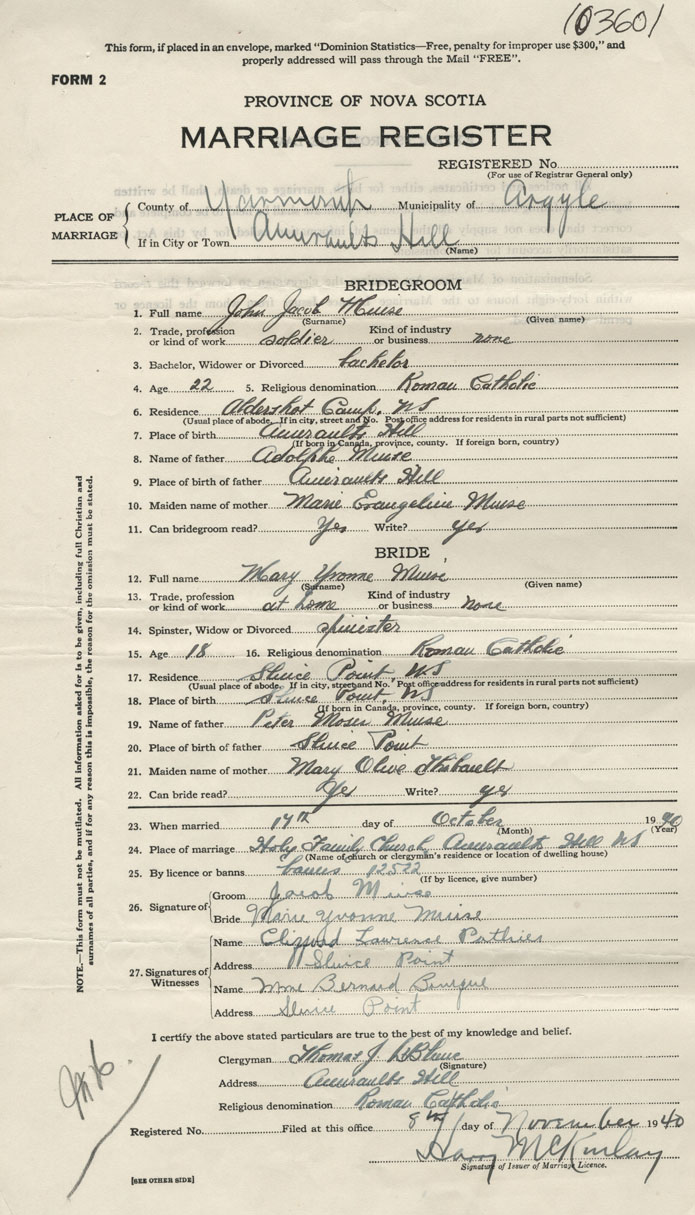 103601
This form, if placed in an envelope, marked "Dominion Statistics—Free, penalty for improper use $300," and
properly addressed will pass through the Mail "FREE".
FORM 2
PROVINCE OF NOVA SCOTIA
MARRIAGE REGISTER
REGISTERED No.
(For use of Registrar General only)
PLACE OF MARRIAGE
County of Yarmouth Municipality of Argyle
If in City or Town Amiraults Hill
(Name)
BRIDEGROOM
1. Full name John Jacob Muise
(Surname) (Given name)
2. Trade, profession or kind of work soldier Kind of industry or business none
3. Bachelor, Widower or Divorced bachelor
4. Age 22 5. Religious denomination Roman Catholic
6. Residence Aldershot Camp, NS
(Usual place of abode. If in city, street and No. Post office address for residents in rural parts not sufficient)
7. Place of birth Amiraults Hill
(If born in Canada, province, county. If foreign born, country)
8. Name of father Adolphe Muise
9. Place of birth of father Amiraults Hill
10. Maiden name of mother Marie Evangeline Muise
11. Can bridegroom read? Yes Write? yes
BRIDE
12. Full name Mary Yvonne Muise
(Surname) (Given name)
13. Trade, profession or kind of work at home Kind of industry or business none
14. Spinster, Widow or Divorced spinster
15. Age 18 16. Religious denomination Roman Catholic
17. Residence Sluice Point, NS
(Usual place of abode. If in city, street and No. Post office address for residents in rural parts not sufficient)
18. Place of birth Sluice Point, NS
(If born in Canada, province, county. If foreign born, country)
19. Name of father Peter Moses Muise
20. Place of birth of father Sluice Point
21. Maiden name of mother Mary Olive Thibault
22. Can bride read? Yes Write? yes
23. When married 17th day of October 1940
(Month) (Year)
24. Place of marriage Holy Family Church, Amiraults Hill NS
(Name of church or clergyman's residence or location of dwelling house)
25. By licence or banns banns 12522
(If by licence, give number)
26. Signature of
Groom Jacob Muise
Bride Marie Yvonne Muise
27. Signatures of Witnesses
Name Clifford Lawrence Pothier
Address Sluice Point
Name Mme Bernard Bourque
Address Sluice Point
I certify the above stated particulars are true to the best of my knowledge and belief.
Clergyman Thomas J. LeBlanc
(Signature)
Address Amiraults Hill
Religious denomination Roman Catholic
Registered No. Filed at this office 8th day of November 1940
Harry McKinlay
Signature of Issuer of Marriage Licence.
[SEE OTHER SIDE]
NOTE.—This form must not be mutilated. All information asked for is to be given, including full Christian and
surnames of all parties, and if for any reason this is impossible, the reason for the omission must be stated.